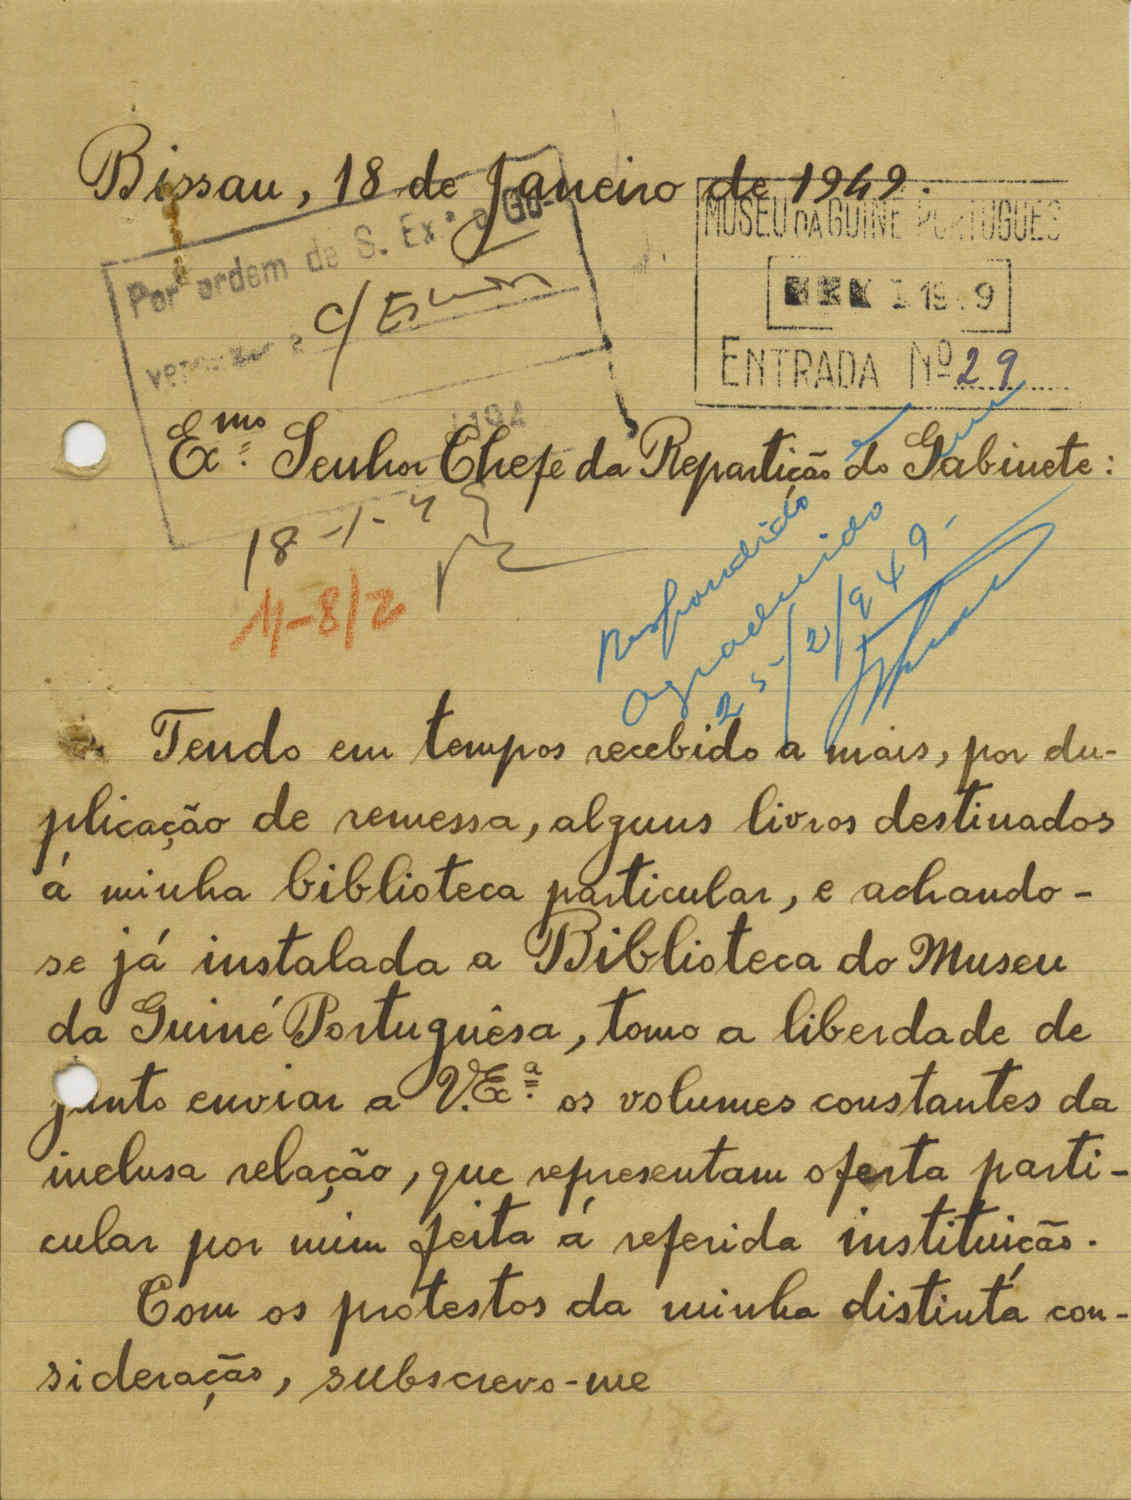 Bissau, 18 de Janeiro de 1949.
Por ordem de S. Ex.ª o Go-
MUSEU DA GUINÉ PORTUGUES
19 9
ENTRADA Nº 29
Ex.mo Senhor Chefe da Repartição do Gabinete:
18-1-4
8/2
Respondido
agradecido
25/2/949-
Tendo em tempos recebido a mais, por du-
plicação de remessa, alguns livros destinados
á minha biblioteca particular, e achando-
se já instalada a Biblioteca do Museu
da Guiné Portuguêsa, tomo a liberdade de
junto enviar a V.Ex.ª os volumes constantes da
inclusa relação, que representam oferta parti-
cular por mim feita á referida instituição.
Com os protestos da minha distinta con-
sideração, subscrevo-me